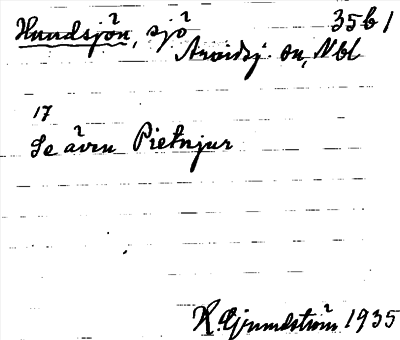 Hundsjön, sjö 35b1
Arvidsj. sn, Nbl
17
Se även Pietnjur
K. Gjsundström 1935